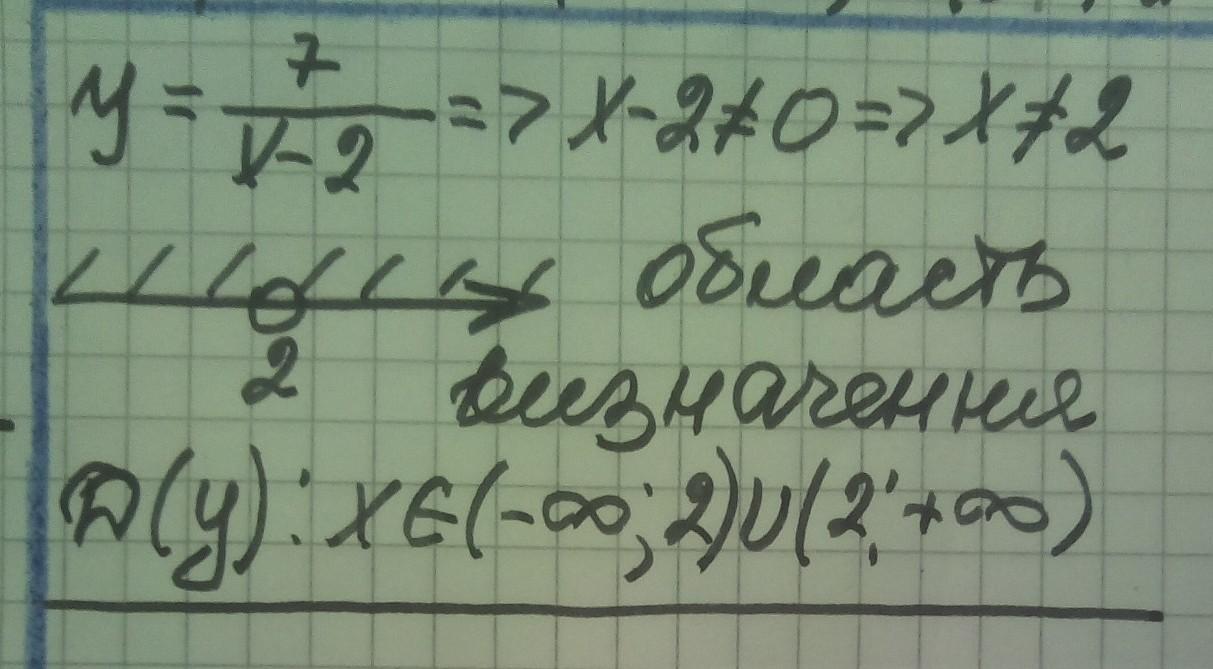 y = 7/(x-2) => x-2≠0 => x≠2
область
2 визначення
D(y): x∈(-∞; 2)∪(2; +∞)